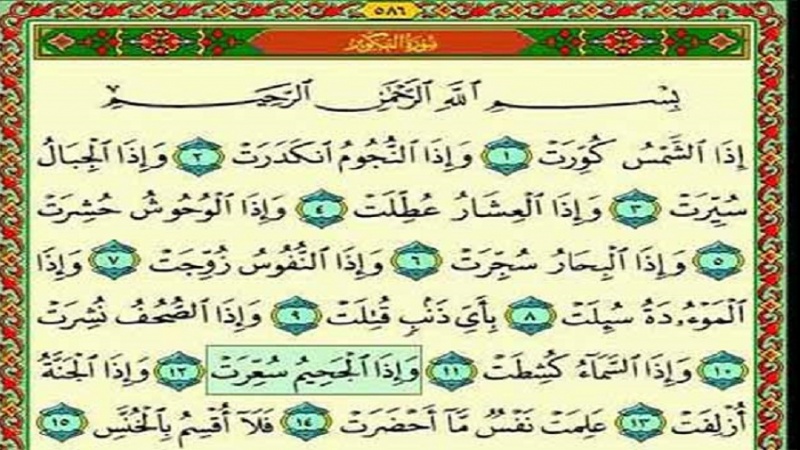 ٥٨٦
سُورَةُ التَّكْوِيرِ
بِسْمِ ٱللَّهِ ٱلرَّحْمَٰنِ ٱلرَّحِيمِ
إِذَا ٱلشَّمْسُ كُوِّرَتْ ١ وَإِذَا ٱلنُّجُومُ ٱنكَدَرَتْ ٢ وَإِذَا ٱلْجِبَالُ
سُيِّرَتْ ٣ وَإِذَا ٱلْعِشَارُ عُطِّلَتْ ٤ وَإِذَا ٱلْوُحُوشُ حُشِرَتْ
٥ وَإِذَا ٱلْبِحَارُ سُجِّرَتْ ٦ وَإِذَا ٱلنُّفُوسُ زُوِّجَتْ ٧ وَإِذَا
ٱلْمَوْءُۥدَةُ سُئِلَتْ ٨ بِأَىِّ ذَنۢبٍ قُتِلَتْ ٩ وَإِذَا ٱلصُّحُفُ نُشِرَتْ
١٠ وَإِذَا ٱلسَّمَآءُ كُشِطَتْ ١١ وَإِذَا ٱلْجَحِيمُ سُعِّرَتْ ١٢ وَإِذَا ٱلْجَنَّةُ
أُزْلِفَتْ ١٣ عَلِمَتْ نَفْسٌ مَّآ أَحْضَرَتْ ١٤ فَلَآ أُقْسِمُ بِٱلْخُنَّسِ ١٥